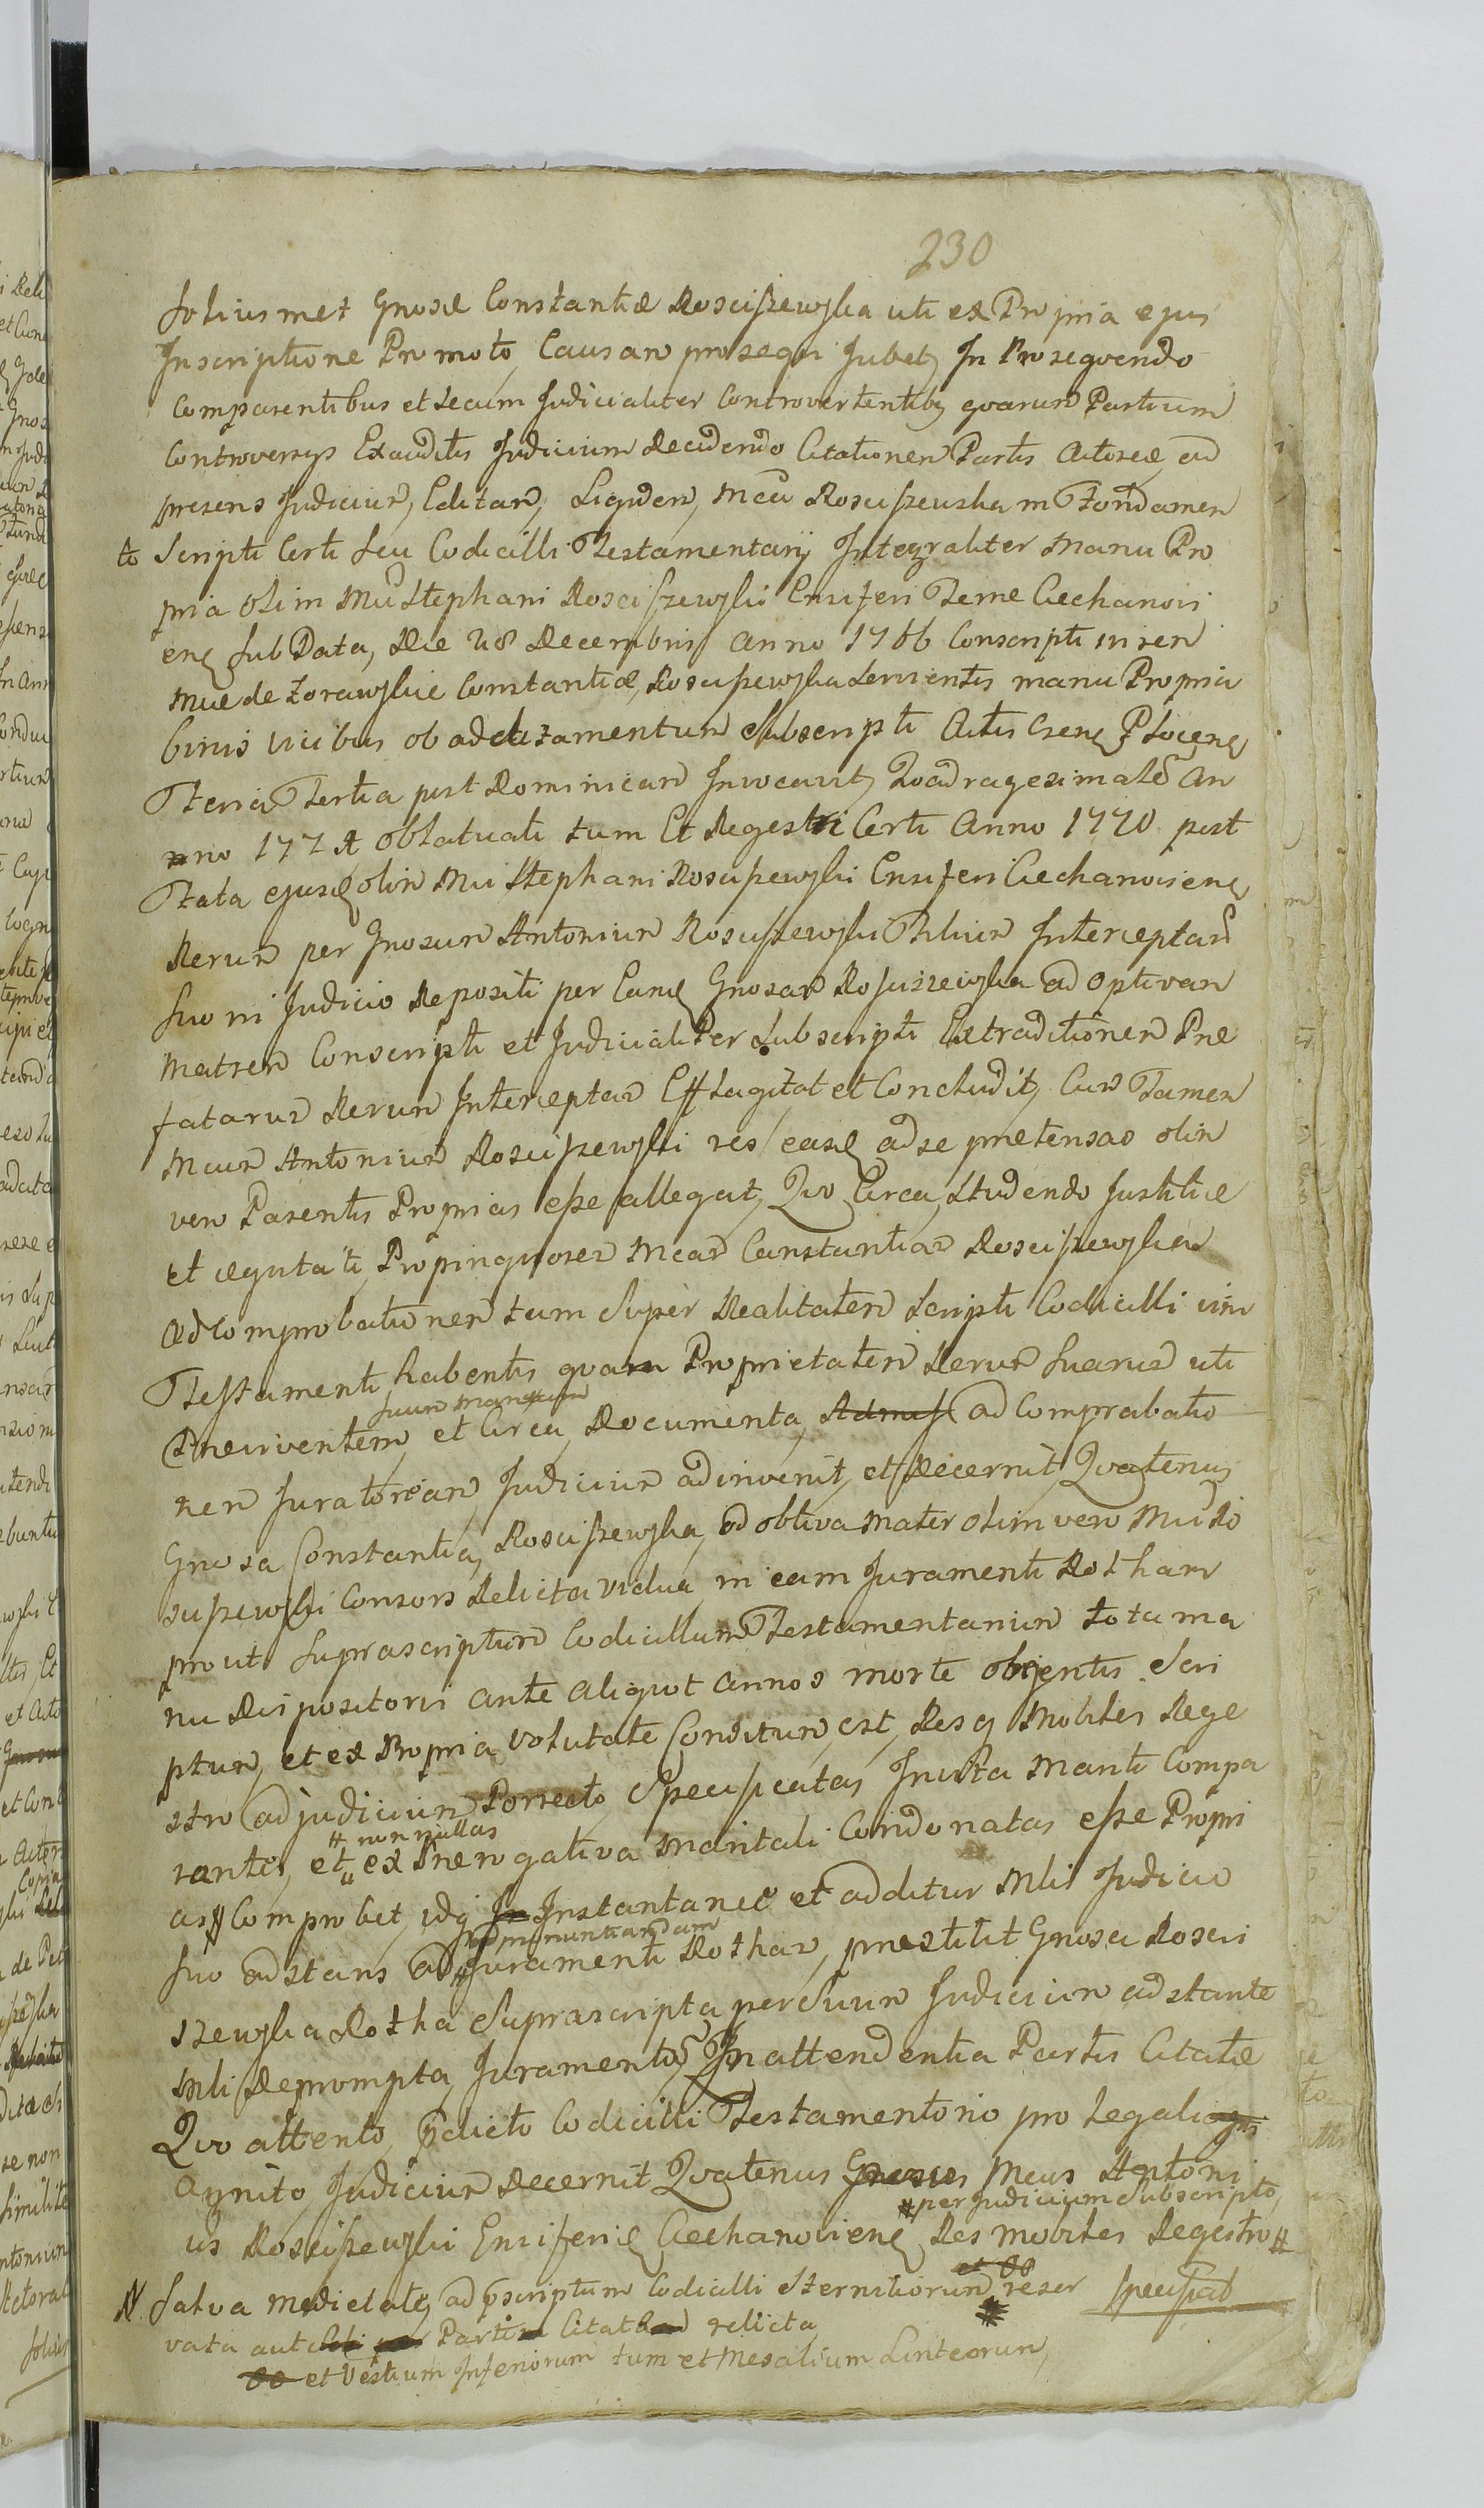 230
solius met Gnosæ Constantiæ Rosciszewska uti ex Propria ejus
Inscriptione Promoto, Causam prosequi Jubet, In Prosequendo
Comparentibus et secum Judicialiter Controvertentibq quarum Partium
Controversys Exauditis Judicium Decidendo Citationem Partis Actoreæ ad
presens Judicium, Editam, Siquidem, Mca Rosciszewska in Fondamen
to Scripti Certi seu Codicilli Testamentarij Integraliter Manu Pro
pria olim Mci Stephani Rosciszewski Ensiferi Terræ Ciechanovi
en sub Data, Die 28 Decembris Anno 1766 Conscripti in rem
Mcæ de Zorawskie Constantiæ Rosciszewska Servientis manu Propria
binis vicibus ob ad Subscripti Actis Plocen
Feria Tertia post Dominicam Invocavit, Quadragesimale An
no 177 oblatuati tum Et Regestri Certi Anno 1770 post
Fata ejusd olim Mci Stephani Rosciszewski Ensiferi Ciechanovien
Rerum per Gnosum Antonium Rosciszewski Filium Interceptar
suo in Judicio Depositi per Eand Gnosam Rosciszewska adoptivam
Matrem Conscripti et Judicialiter Subscripti Extraditionem Præ
fatarum Rerum Interceptar Efflagitat et Concludit, Cum Tamen
Mcus Antonius Rosciszewski res easd ad se pretensas olim
vero Parentis Proprias esse allegat, Quo Circa, Studendo Justitiæ
et æquitati Propinquiorem Mcam Constantiam Rosciszewska
ad Comprobationem tum Super Realitatem Scripti Codicilli vim
Testamenti habentis quam Proprietatem Rerum suarum uti
suum maritum
Præviventem, et Circa, Documenta, ad Comprobatio
nem Juratoream Judicium adinvenit, et Decernit, Quatenus
Gnosa Constantia, Rosciszewska, adobtiva Mater olim vero Mci Ro
sciszewski Consors Relicta vidua in eam Juramenti Rotham
prout Suprascriptum Codicillum Testamentarium tota ma
nu Dispositoris ante aliquot annos morte obientis Scri
ptum, et ex Propria Volutate Conditum, est, Resq Mobiles Rege
stro ad judicium Porrecto Specificatas Juxta Manti Compa
# non nullas
rantes, et ex Prærogativa Maritali Condonatas esse Propri
as Comprobet, idq Instantanee et additur Mlis Judicio
ad pronuntiandam
suo adstans ad Juramenti Rotham, prestitit Gnosa Rosci
szewska Rotha Suprascripta per Suum Judicium adstante
Mli Deprompta, Juramento In attendentia Partis Citatæ
Quo attento, pdicto Codicilli Testamentorio pro Legali
agnito, Judicium Decernit Quatenus Mcus Antoni
# per Judicium Subscripto
us Rosciszewski Ensiferid Ciechanovien Res Mobiles Regestro #
Specificat
N. Salva medietate, ad pscriptum Codicilli Sternitiorum reser
vata aut Parti Citat relicta
et Vestium Inferiorum tum et Mesalium Linteorum,